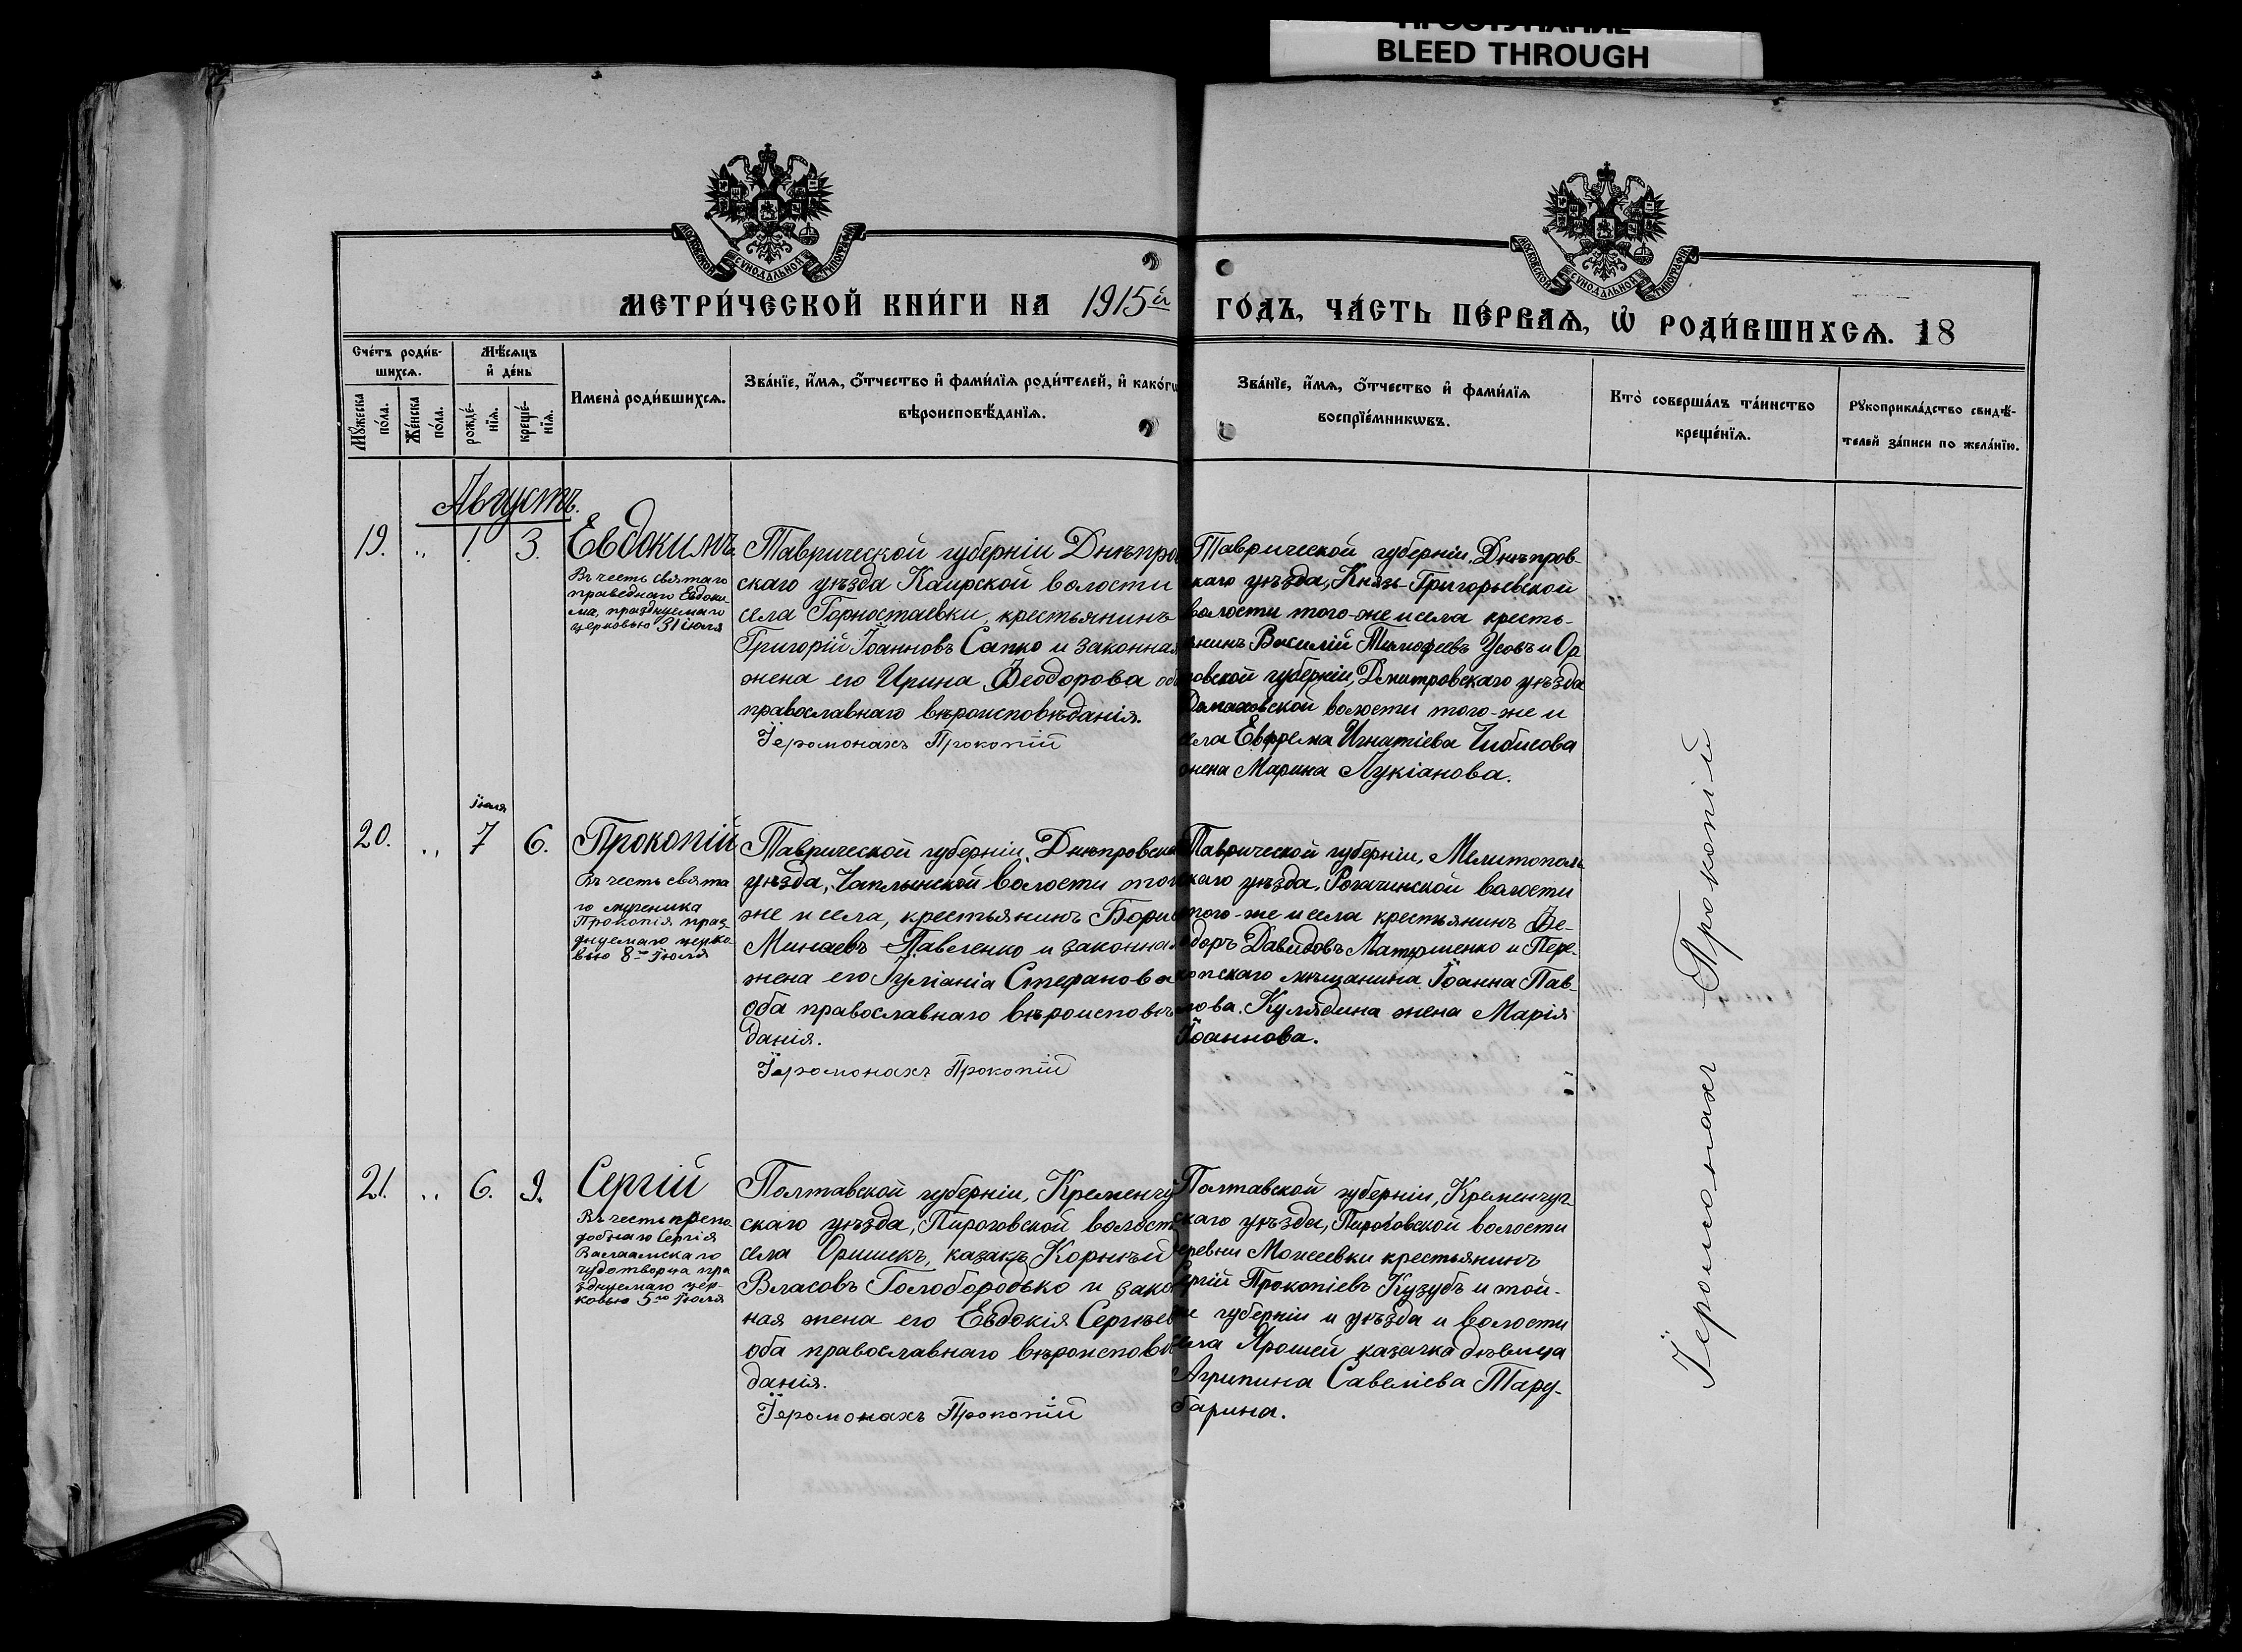 ПРОСТУПАНИЕ
BLEED THROUGH
МОСКОВСКОЙ СѴНОДАЛЬНОЙ ТИПОГРАФІИ
МОСКОВСКОЙ СѴНОДАЛЬНОЙ ТИПОГРАФІИ
МЕТРИ́ЧЕСКОЙ КНИ́ГИ НА 1915й
ГО́ДЪ, ЧА́СТЬ ПЕ́РВАѦ, Ѡ҆ РОДИ́ВШИХСѦ. 18
Сче́тъ роди́в-
шихсѧ.
Мꙋ́жеска
по́ла.
Же́нска
по́ла.
Мѣ́сѧцъ
и҆ де́нь
рожде́-
нїѧ.
креще́-
нїѧ.
Имена̀ роди́вшихсѧ.
Зва́нїе, и҆́мѧ, ѻ҆́тчество и҆ фами́лїѧ роди́телей, и҆ како́гѡ
вѣроисповѣ́данїѧ.
Зва́нїе, и҆́мѧ, ѻ҆́тчество и҆ фами́лїѧ
воспрїе́мникѡвъ.
Кто̀ соверша́лъ та́инство
креще́нїѧ.
Рꙋкоприкла́дство свидѣ́-
телей за́писи по жела́нїю.
Августъ.
19. „ 1. 3. Евдокимъ.
Въ честь святаго
праведнаго Евдоки-
ма, празднуемаго
церковью 31 іюля
Таврической губерніи Днѣпров
скаго уѣзда Каирской волости
села Горностаевки, крестьянинъ
Григорій Іоанновъ Сапко и законная
жена его Ирина Ѳеодорова оба
православнаго вѣроисповѣданія.
Іеромонахъ Прокопій
Таврической губерніи, Днѣпров-
скаго уѣзда, Князь-Григорьевской
волости того-же и села кресть-
янинъ Василій Тимофеевъ Усовъ и Ор
ловской губерніи, Дмитровскаго уѣзда
Домаховской волости того-же и
села Евфрема Игнатіева Чибисова
жена Марина Лукіанова.
Іюля
20. „ 7 6. Прокопій
Въ честь свята
го мученика
Прокопія праз
днуемаго церко-
вью 8го Іюля
Таврической губерніи, Днѣпровска
уѣзда, Чаплынской волости того
же и села, крестьянинъ Борис
Минаевъ Павленко и законная
жена его Іуліанія Стефанова
оба православнаго вѣроисповѣ
данія.
Іеромонахъ Прокопій
Таврической губерніи, Мелитополь
скаго уѣзда, Рогачинской волости
того-же и села крестьянинъ Ѳе-
одоръ Давидовъ Матюшенко и Пере-
копскаго мѣщанина Іоанна Пав-
лова Кулядина жена Марія
Іоаннова.
21. „ 6. 9. Сергій
Въ честь препо
добнаго Сергія
Валаамскаго
чудотворца пра
зднуемаго цер-
ковью 5го Іюля
Полтавской губерніи, Кременчуг
скаго уѣзда, Пироговской волости
села Оришекъ, казакъ Корнѣй
Власовъ Голобородько и закон
ная жена его Евдокія Сергѣев
оба православнаго вѣроисповѣ
данія.
Іеромонахъ Прокопій
Полтавской губерніи, Кременчуг
скаго уѣзда, Пироговской волости
деревни Моисеевки крестьянинъ
Сергій Прокопіевъ Кузубъ и той-
же губерніи и уѣзда и волости
села Ярошей казачка дѣвица
Агрипина Савеліева Тару-
барина.
Іеромонахъ Прокопій